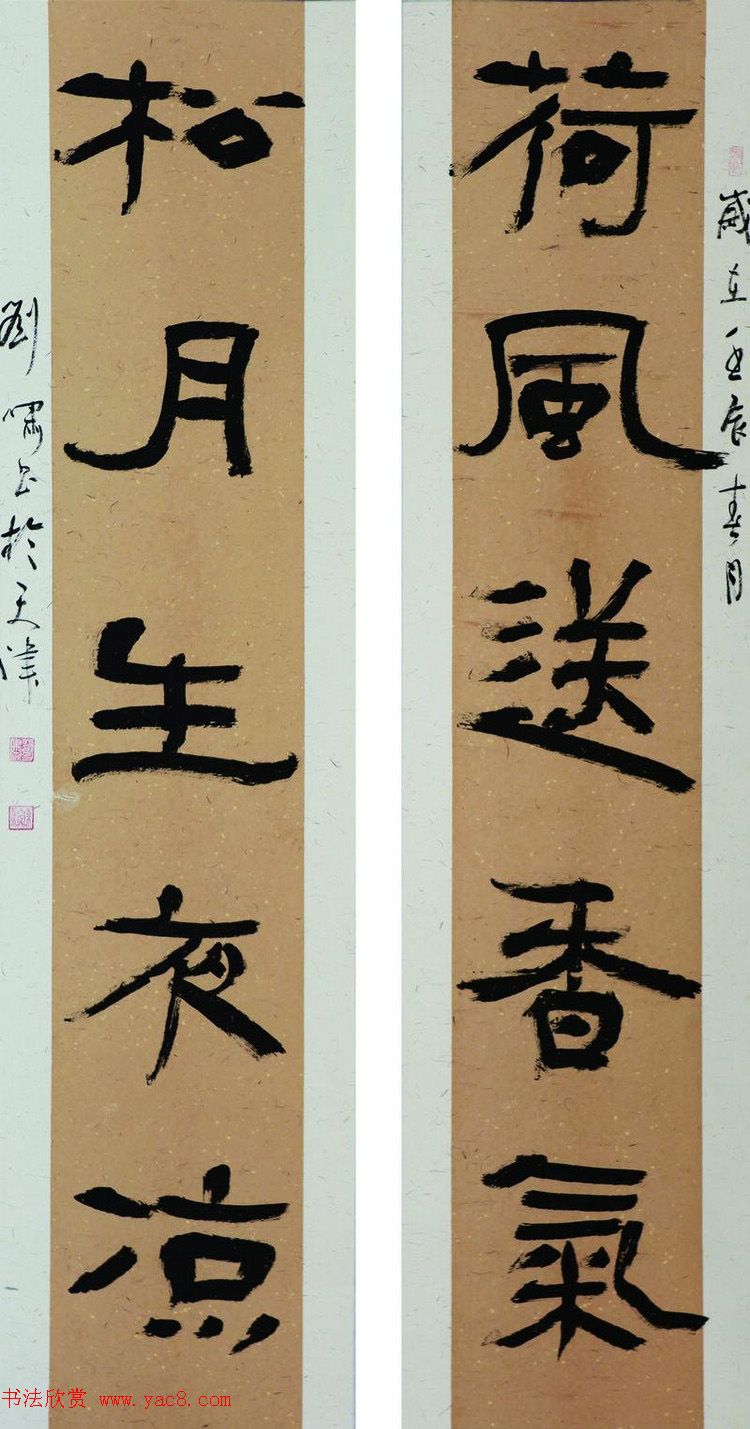 歲在壬辰春月
荷風送香氣
松月生夜凉
劉嘯書於天津
书法欣赏 www.yac8.com